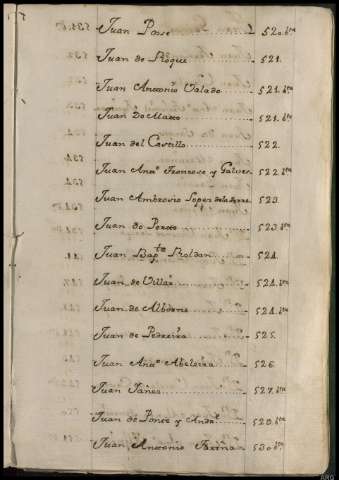 Juan Pose 520. bta
Juan de Roque 521.
Juan Antonio Valado 521. bta
Juan Do Mato 521. bta
Juan del Castillo 522.
Juan Anto. Troncoso y Galvez 522 bta
Juan Ambrosio Lopez de la Torre 523.
Juan do Porto 523 bta
Juan Bapta Roldan 524.
Juan de Villar 524. bta
Juan de Albornz 524. bta
Juan de Pedreira 525.
Juan Anto. Abeleira 526
Juan Yañes 527. bta
Juan de Ponte y Andre. 528. bta
Juan Antonio Fariña 530 bta